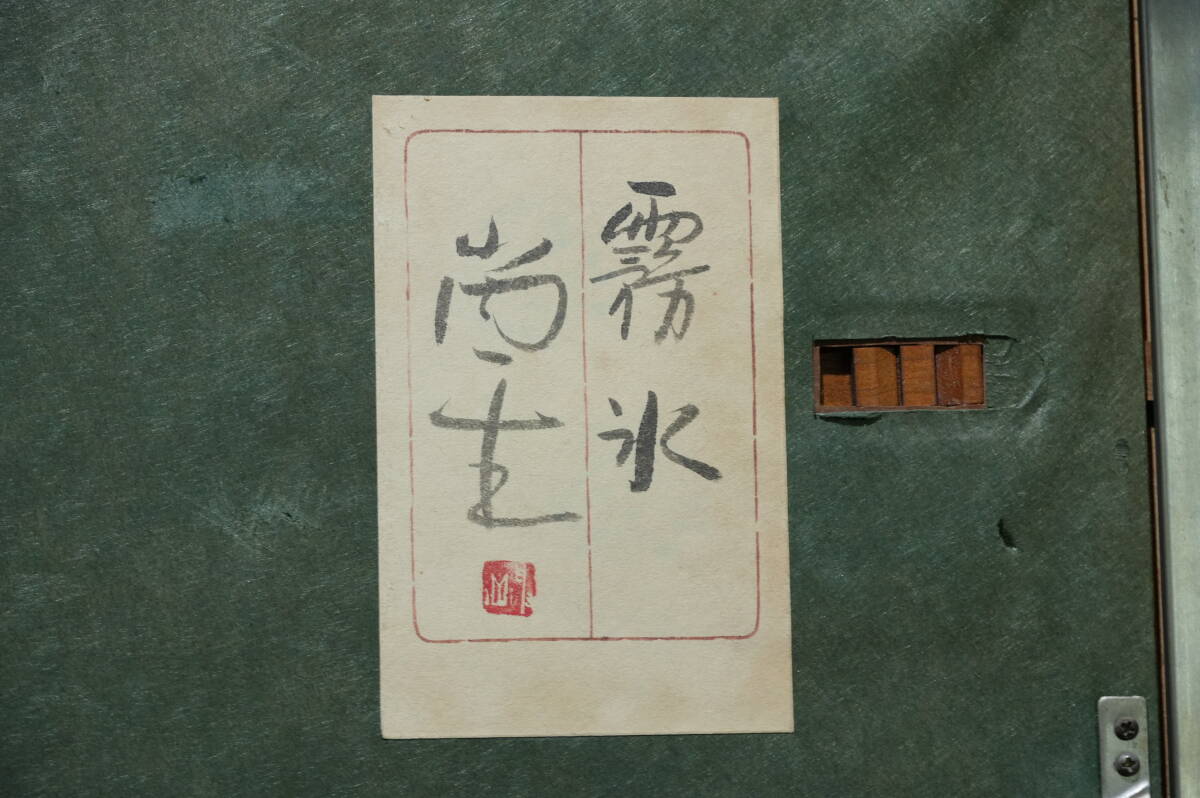 霧氷
尚生